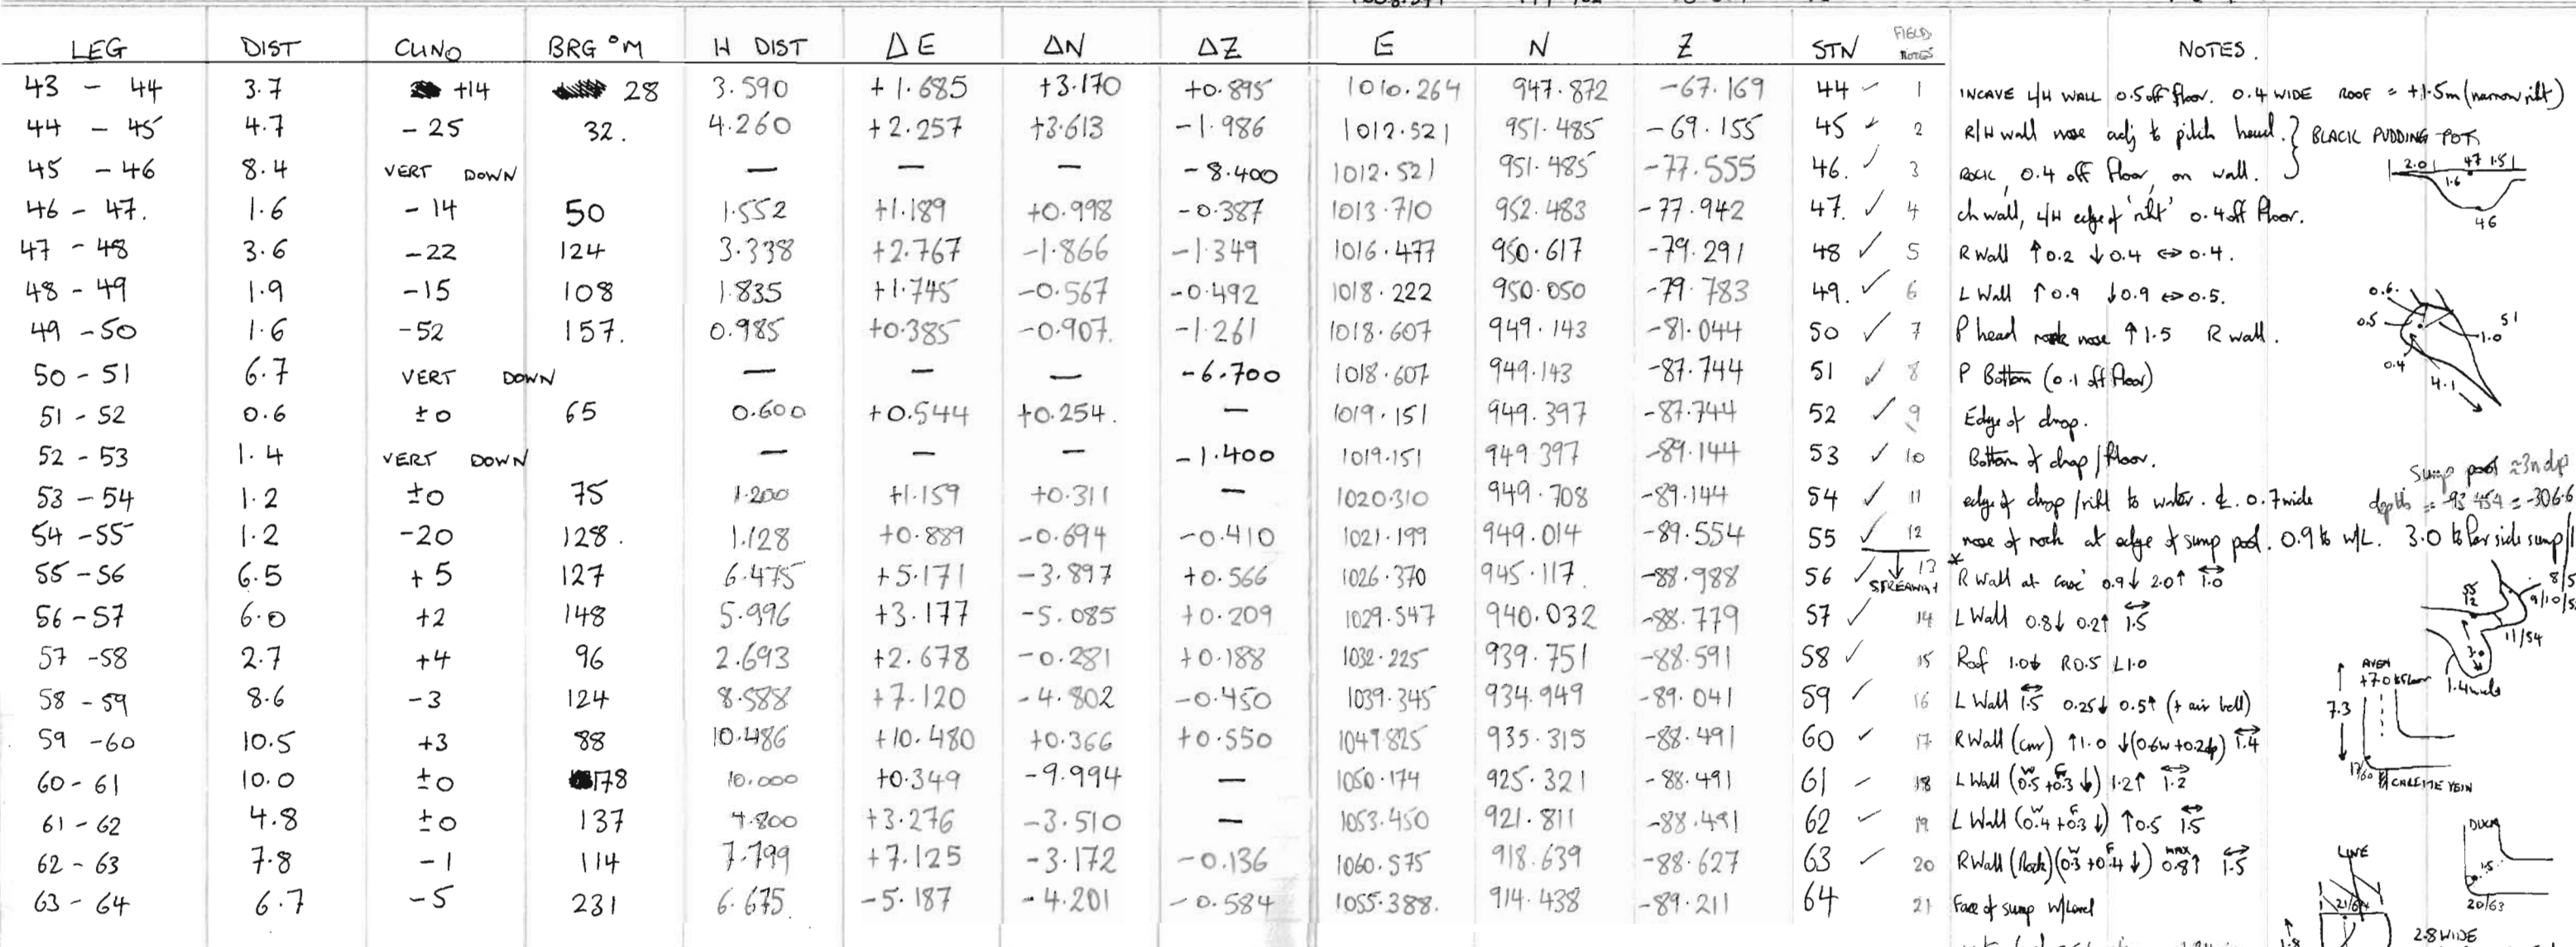 LEG DIST CLINO BRG °M H DIST ΔE ΔN ΔZ E N Z STN FIELD NOTES NOTES.
43 - 44 3.7 +14 28 3.590 +1.685 +3.170 +0.895 1010.264 947.872 -67.169 44 ✓ 1 INCAVE L/H WALL 0.5 off floor. 0.4 WIDE ROOF = +1.5m (narrow rift)
44 - 45 4.7 -25 32. 4.260 +2.257 +3.613 -1.986 1012.521 951.485 -69.155 45 ✓ 2 R/H wall nose adj to pitch head. } BLACK PUDDING POT
45 - 46 8.4 VERT DOWN — — — -8.400 1012.521 951.485 -77.555 46. ✓ 3 ROCK, 0.4 off floor, on wall.
2.0 47 1.5
1.6
46
46 - 47. 1.6 -14 50 1.552 +1.189 +0.998 -0.387 1013.710 952.483 -77.942 47. ✓ 4 ch wall, L/H edge of 'rift' 0.4 off floor.
47 - 48 3.6 -22 124 3.338 +2.767 -1.866 -1.349 1016.477 950.617 -79.291 48 ✓ 5 R Wall ↑0.2 ↓0.4 ↔0.4.
48 - 49 1.9 -15 108 1.835 +1.745 -0.567 -0.492 1018.222 950.050 -79.783 49. ✓ 6 L Wall ↑0.9 ↓0.9 ↔0.5.
49 - 50 1.6 -52 157. 0.985 +0.385 -0.907. -1.261 1018.607 949.143 -81.044 50 ✓ 7 P head nose ↑1.5 R wall.
0.6.
0.5 51
1.0
0.4
4.1
50 - 51 6.7 VERT DOWN — — — -6.700 1018.607 949.143 -87.744 51 ✓ 8 P Bottom (0.1 off floor)
51 - 52 0.6 ±0 65 0.600 +0.544 +0.254. — 1019.151 949.397 -87.744 52 ✓ 9 Edge of drop.
52 - 53 1.4 VERT DOWN — — — -1.400 1019.151 949.397 -89.144 53 ✓ 10 Bottom of drop/floor.
sump pool ≈3m dp
53 - 54 1.2 ±0 75 1.200 +1.159 +0.311 — 1020.310 949.708 -89.144 54 ✓ 11 edge of drop/rift to water. 0.7 wide
depth = -93.454 = -306.6
54 - 55 1.2 -20 128. 1.128 +0.889 -0.694 -0.410 1021.199 949.014 -89.554 55 ✓ 12 nose of rock at edge of sump pool. 0.9 to W/L. 3.0 to far side sump
55 - 56 6.5 +5 127 6.475 +5.171 -3.897 +0.566 1026.370 945.117. -88.988 56 ✓ STREAMWAY 13 * R Wall at 0.9↓ 2.0↑ ↔1.0
56 - 57 6.0 +2 148 5.996 +3.177 -5.085 +0.209 1029.547 940.032 -88.779 57 ✓ 14 L Wall 0.8↓ 0.2↑ ↔1.5
55
12
8/5
9/10/5
11/54
3.0
1.4 wide
57 - 58 2.7 +4 96 2.693 +2.678 -0.281 +0.188 1032.225 939.751 -88.591 58 ✓ 15 Roof 1.0↓ R0.5 L1.0
58 - 59 8.6 -3 124 8.588 +7.120 -4.802 -0.450 1039.345 934.949 -89.041 59 ✓ 16 L Wall ↔1.5 0.25↓ 0.5↑ (+ air bell)
AVEN
+7.0 to floor
7.3
17/60
CALCITE VEIN
59 - 60 10.5 +3 88 10.486 +10.480 +0.366 +0.550 1049.825 935.315 -88.491 60 ✓ 17 R Wall (cnr) ↑1.0 ↓(0.6w +0.2dp) ↔1.4
60 - 61 10.0 ±0 178 10.000 +0.349 -9.994 — 1050.174 925.321 -88.491 61 ✓ 18 L Wall (W 0.5 + F 0.3 ↓) 1.2↑ ↔1.2
61 - 62 4.8 ±0 137 4.800 +3.276 -3.510 — 1053.450 921.811 -88.491 62 ✓ 19 L Wall (W 0.4 + F 0.3 ↓) ↑0.5 ↔1.5
62 - 63 7.8 -1 114 7.799 +7.125 -3.172 -0.136 1060.575 918.639 -88.627 63 ✓ 20 R Wall (Rock) (W 0.3 + F 0.4 ↓) MAX 0.8↑ ↔1.5
63 - 64 6.7 -5 231 6.675 -5.187 -4.201 -0.584 1055.388. 914.438 -89.211 64 21 Face of sump W/Level
DUCK
1.5
20/63
LINE
21/64
2.8 WIDE
1.8